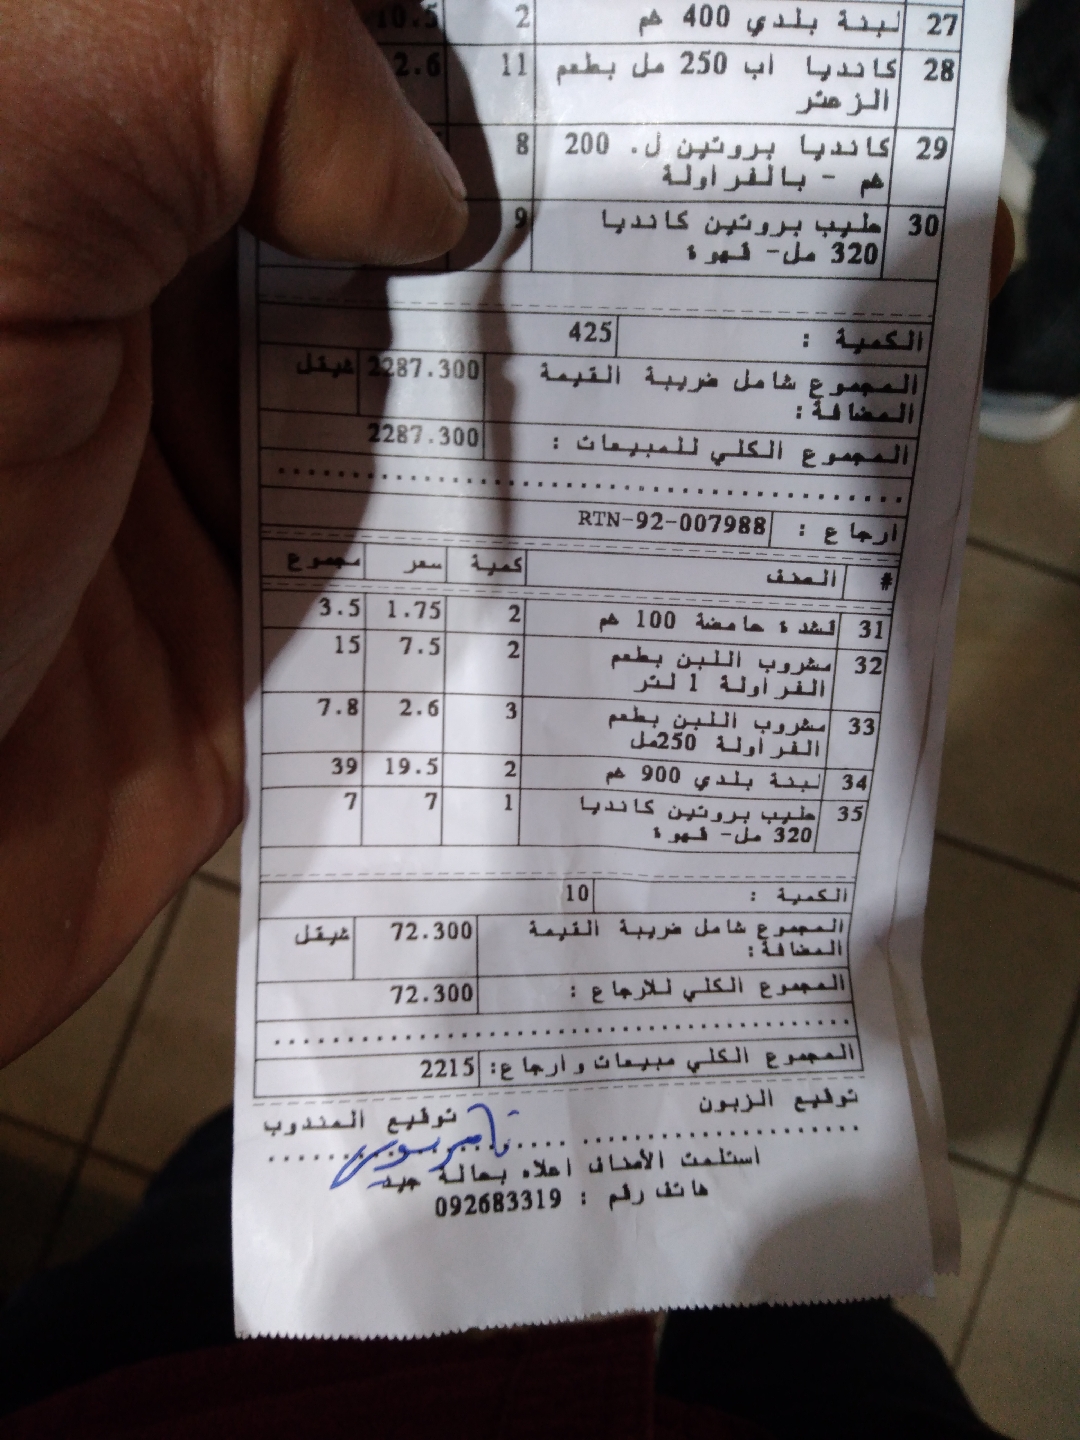 27 لبنة بلدي 400 غم 2 10.5
28 كانديا اب 250 مل بطعم 11 2.6
الزعتر
29 كانديا بروتين ل. 200 8
غم - بالفراولة
30 حليب بروتين كانديا 9
320 مل- قهوة
الكمية : 425
المجموع شامل ضريبة القيمة 2287.300 شيقل
المضافة:
المجموع الكلي للمبيعات : 2287.300
ارجاع : RTN-92-007988
# الصنف كمية سعر مجموع
31 قشدة حامضة 100 غم 2 1.75 3.5
32 مشروب اللبن بطعم 2 7.5 15
الفراولة 1 لتر
33 مشروب اللبن بطعم 3 2.6 7.8
الفراولة 250مل
34 لبنة بلدي 900 غم 2 19.5 39
35 حليب بروتين كانديا 1 7 7
320 مل- قهوة
الكمية : 10
المجموع شامل ضريبة القيمة 72.300 شيقل
المضافة:
المجموع الكلي للارجاع : 72.300
المجموع الكلي مبيعات وارجاع: 2215
توقيع الزبون توقيع المندوب
استلمت الأصناف اعلاه بحالة جيد
هاتف رقم : 092683319